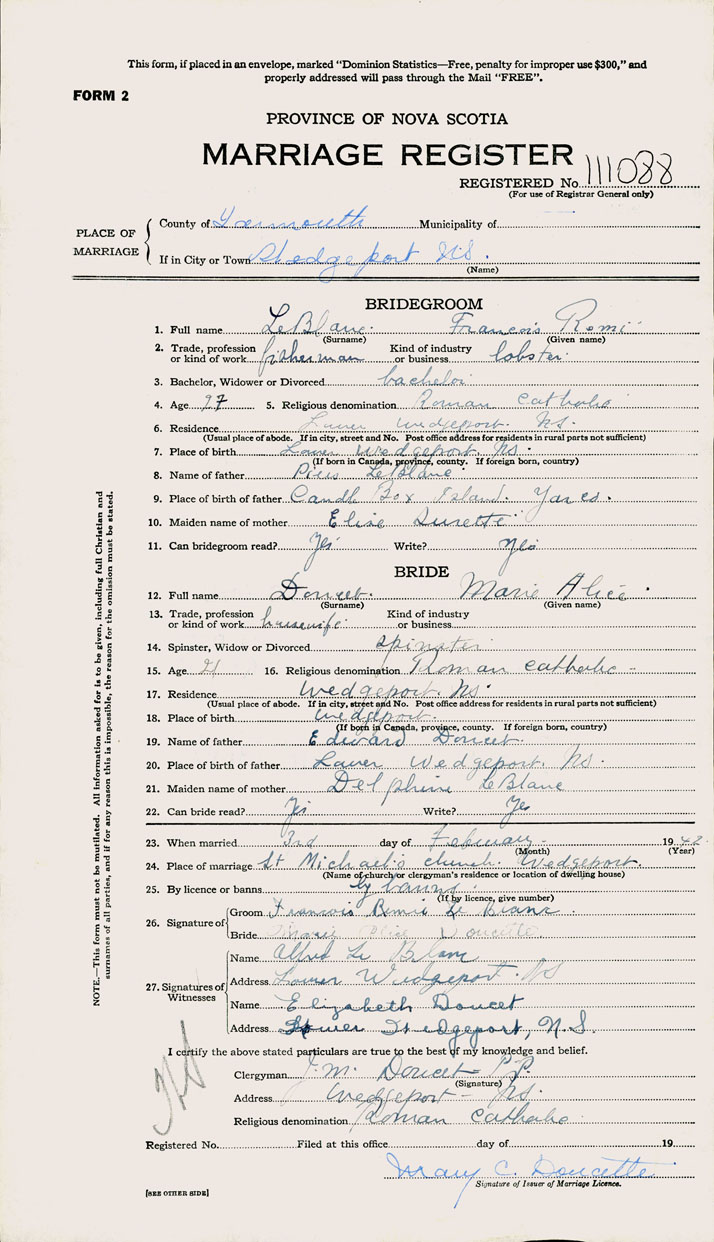 This form, if placed in an envelope, marked "Dominion Statistics—Free, penalty for improper use $300," and
properly addressed will pass through the Mail "FREE".
FORM 2
PROVINCE OF NOVA SCOTIA
MARRIAGE REGISTER
REGISTERED No. 111088
(For use of Registrar General only)
PLACE OF MARRIAGE
County of Yarmouth Municipality of
If in City or Town Wedgeport N.S.
(Name)
BRIDEGROOM
1. Full name LeBlanc Francois Remi
(Surname) (Given name)
2. Trade, profession or kind of work fisherman Kind of industry or business lobster
3. Bachelor, Widower or Divorced bachelor
4. Age 27 5. Religious denomination Roman Catholic
6. Residence Lower Wedgeport. N.S.
(Usual place of abode. If in city, street and No. Post office address for residents in rural parts not sufficient)
7. Place of birth Lower Wedgeport. N.S.
(If born in Canada, province, county. If foreign born, country)
8. Name of father Pius LeBlanc
9. Place of birth of father Candle Box Island. Yar co.
10. Maiden name of mother Elise Surette
11. Can bridegroom read? Yes Write? Yes
BRIDE
12. Full name Doucet Marie Alice
(Surname) (Given name)
13. Trade, profession or kind of work housewife Kind of industry or business
14. Spinster, Widow or Divorced spinster
15. Age 21 16. Religious denomination Roman Catholic -
17. Residence Wedgeport. N.S.
(Usual place of abode. If in city, street and No. Post office address for residents in rural parts not sufficient)
18. Place of birth Wedgeport.
(If born in Canada, province, county. If foreign born, country)
19. Name of father Edward Doucet
20. Place of birth of father Lower Wedgeport. N.S.
21. Maiden name of mother Delphine LeBlanc
22. Can bride read? Yes Write? Yes
23. When married 3rd day of February 1942
(Month) (Year)
24. Place of marriage St Michael's church. Wedgeport.
(Name of church or clergyman's residence or location of dwelling house)
25. By licence or banns by banns
(If by licence, give number)
26. Signature of
Groom Francois Remie Le Blanc
Bride Marie Alice Doucette
27. Signatures of Witnesses
Name Alfred Le Blanc
Address Lower Wedgeport. NS
Name Elizabeth Doucet
Address Lower Wedgeport, N.S.
I certify the above stated particulars are true to the best of my knowledge and belief.
Clergyman J. M. Doucet P.P.
(Signature)
Address Wedgeport - N.S.
Religious denomination Roman Catholic
Registered No. Filed at this office day of 19
Mary C. Doucette
Signature of Issuer of Marriage Licence.
[SEE OTHER SIDE]
NOTE.—This form must not be mutilated. All information asked for is to be given, including full Christian and
surnames of all parties, and if for any reason this is impossible, the reason for the omission must be stated.